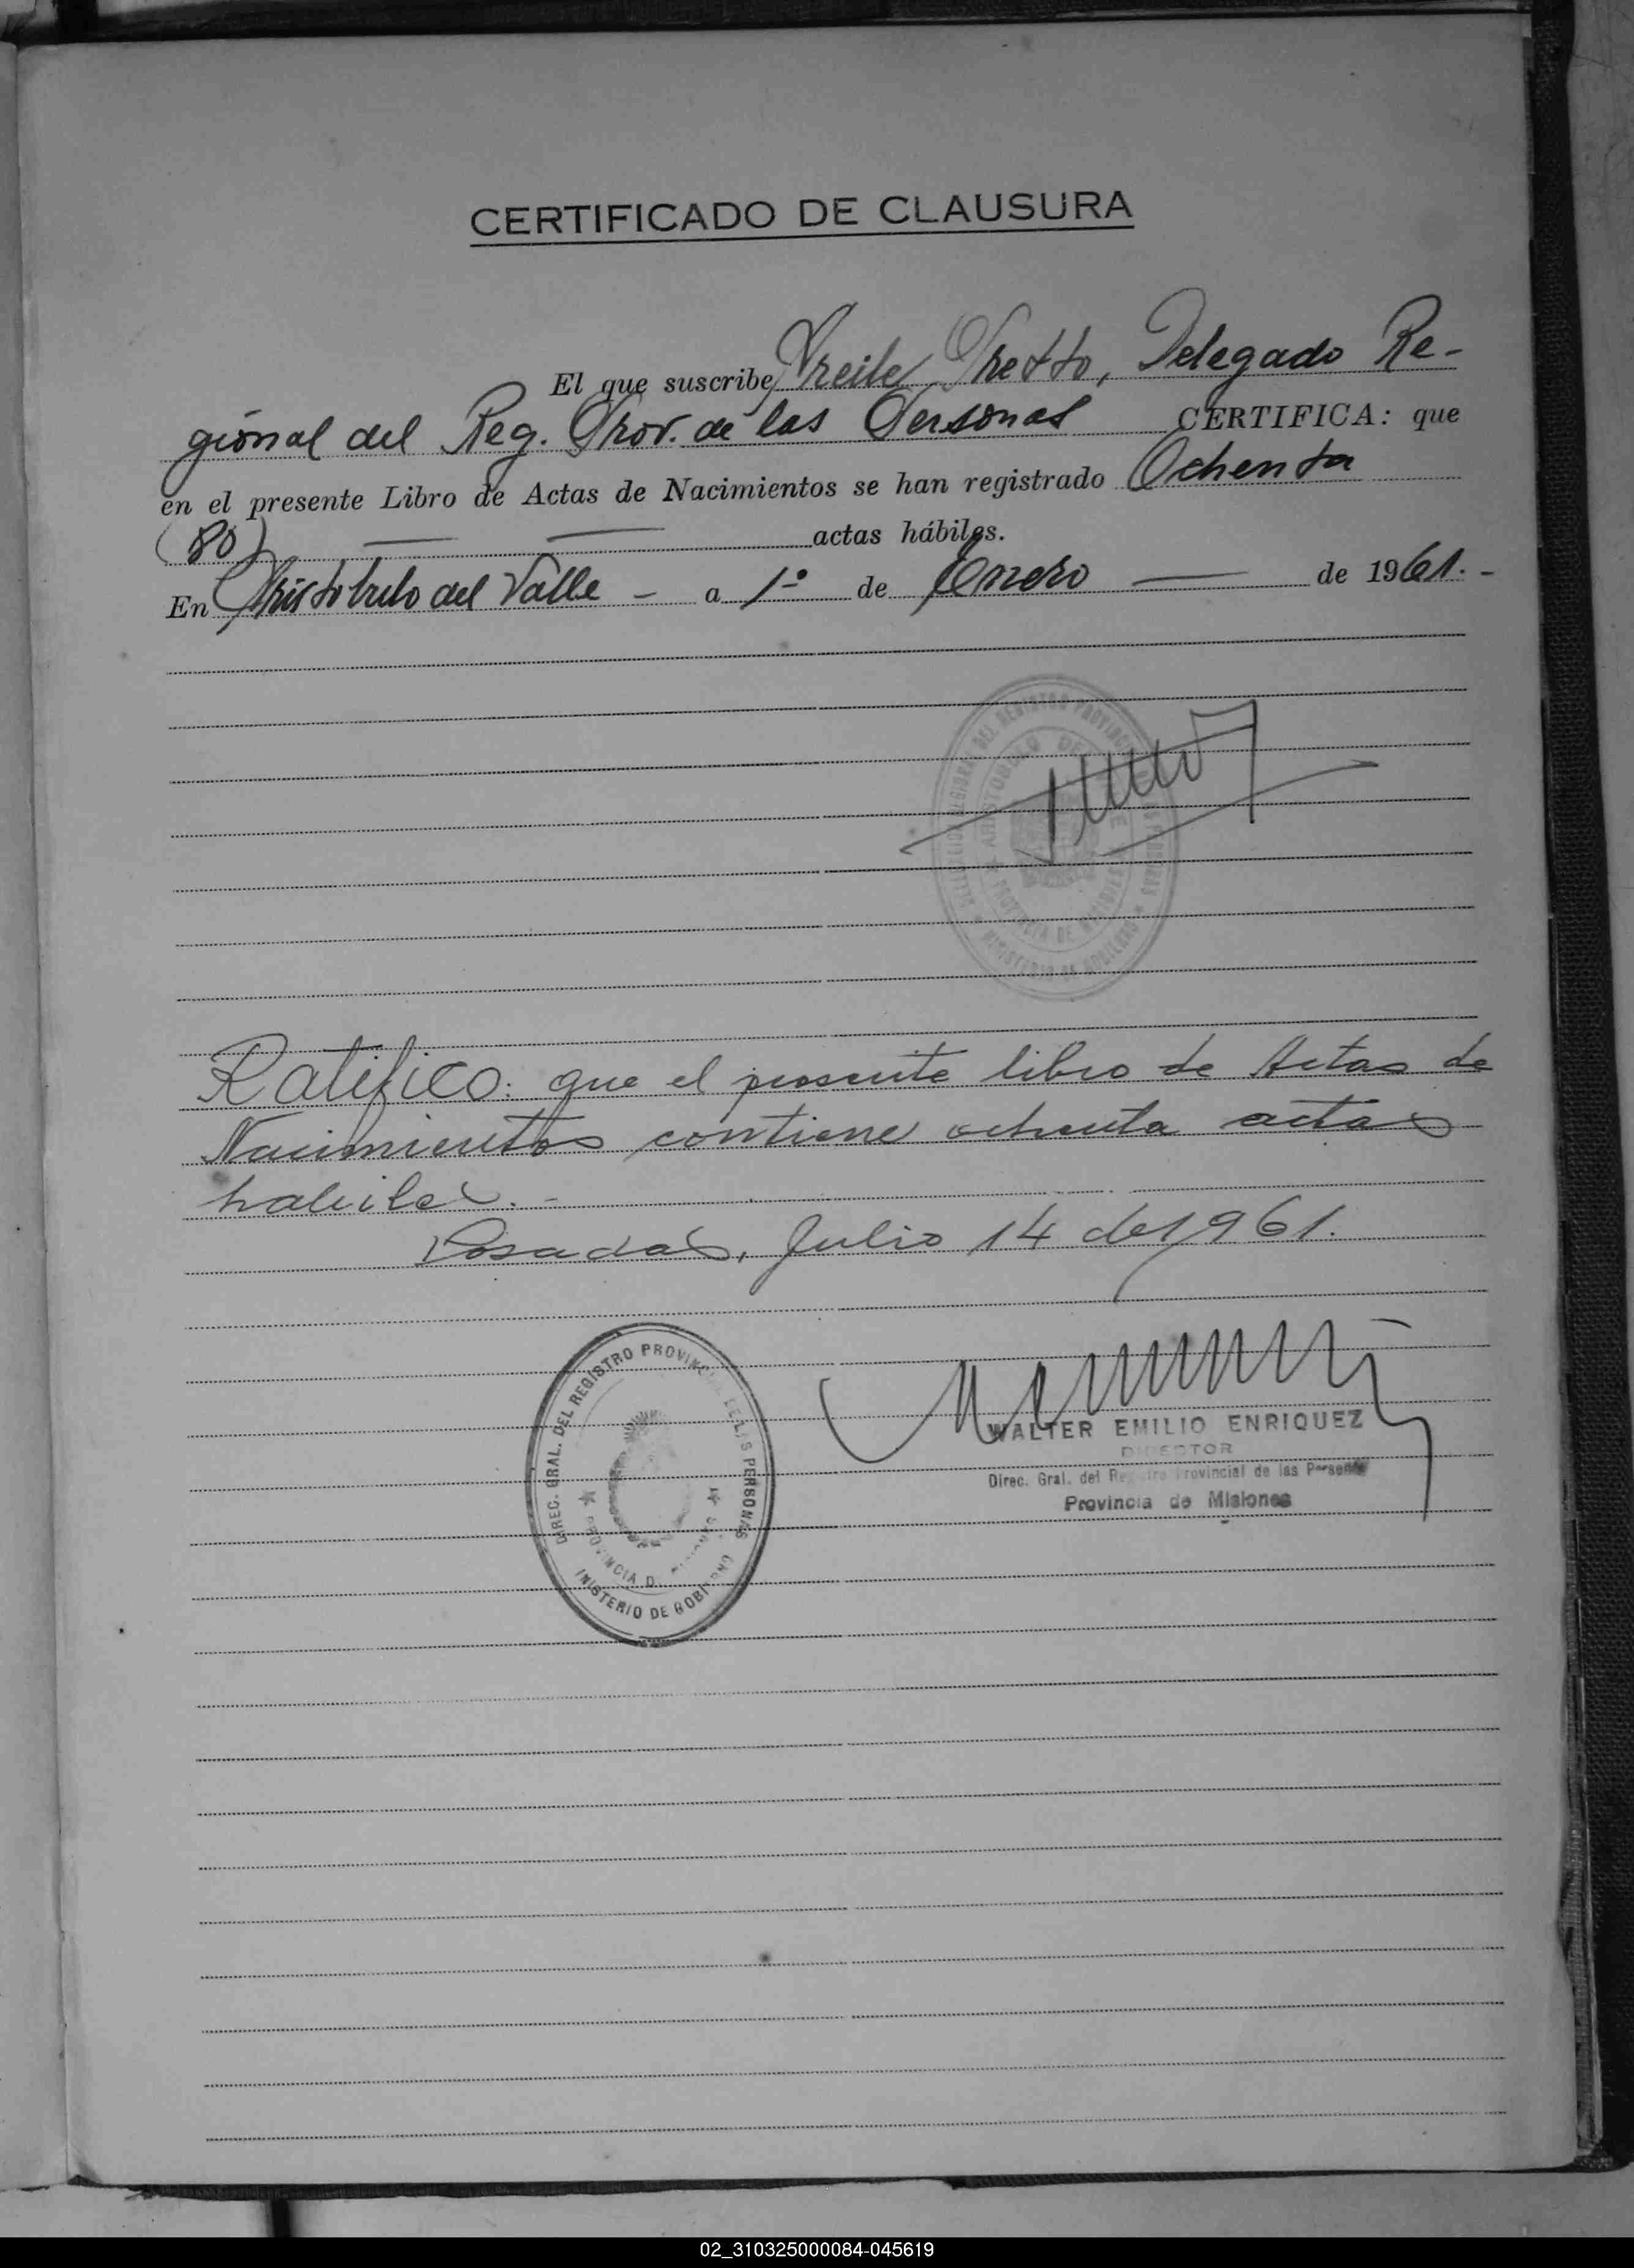 CERTIFICADO DE CLAUSURA
El que suscribe Delegado Re-
gional del Reg. Prov. de las Personas CERTIFICA: que
en el presente Libro de Actas de Nacimientos se han registrado Ochenta
(80) — — actas hábiles.
En Aristobulo del Valle - a 1º de Enero — de 1961.-
Ratifico: que el presente libro de Actas de
Nacimientos contiene ochenta actas
habiles.-
Posadas, Julio 14 de 1961.
WALTER EMILIO ENRIQUEZ
DIRECTOR
Direc. Gral. del Registro Provincial de las Personas
Provincia de Misiones
DIREC. GRAL. DEL REGISTRO PROVINCIAL DE LAS PERSONAS
PROVINCIA DE MISIONES
MINISTERIO DE GOBIERNO
02_310325000084-045619